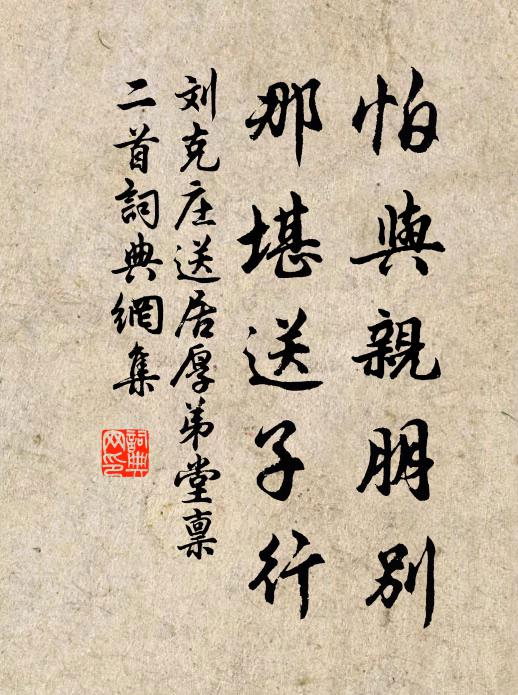 怕與親朋別
那堪送子行
刘克庄送居厚弟堂稟
二首詞典網集
詞典网印